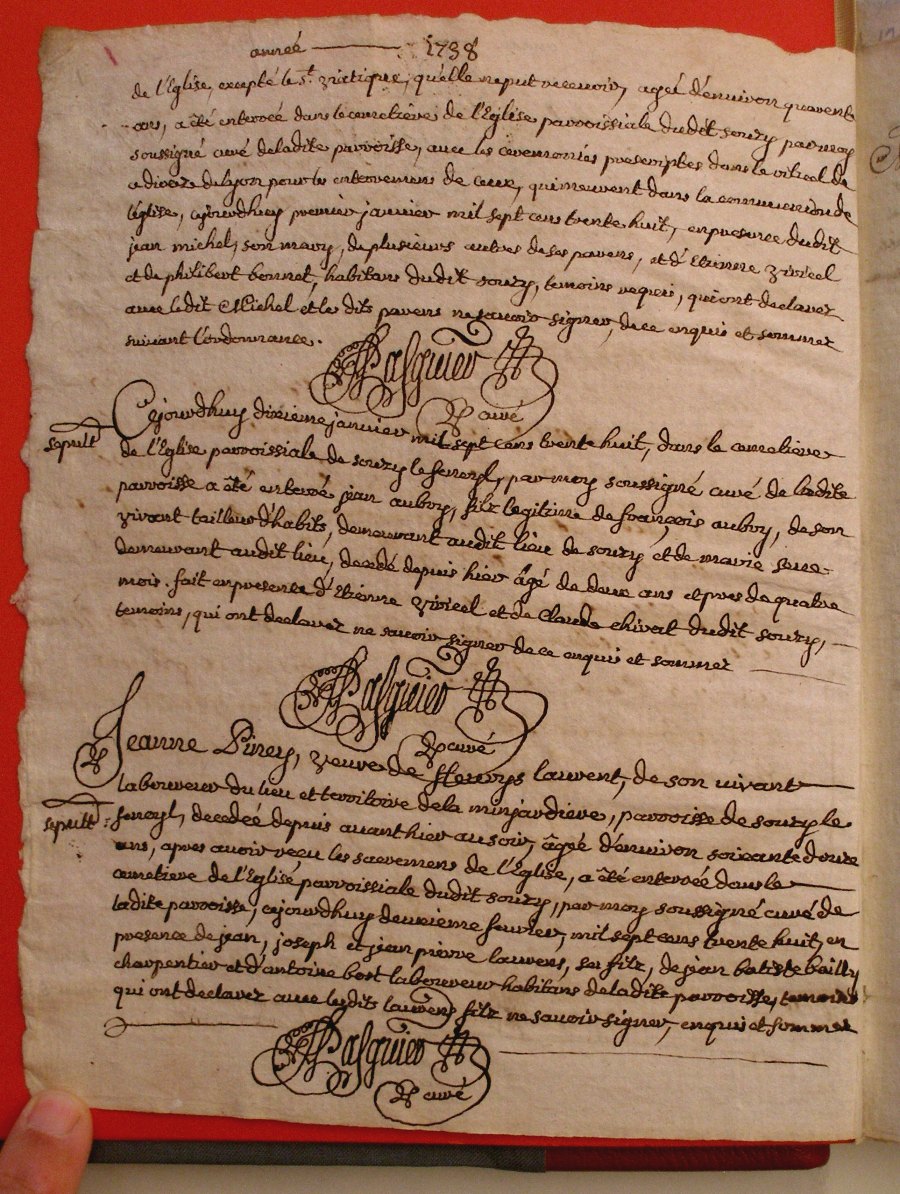 année 1738
de l'Eglise, excepté le st. viatique, qu'elle ne put recevoir, agée d'environ quarente
ans, a êté enterrée dans le cemetiere de l'Eglise parroissiale dudit souzy par moy
soussigné curé de ladite parroisse, avec les ceremonies prescriptes dans le rituel de
a dioceze de lyon pour les enterremens de ceux, qui meurent dans la communion de
l'église, cejourdhuy premier janvier mil sept cens trente huit, en presence dudit
jean michel, son mary, de plusieurs autres de ses parens, et d'Etienne viricel
et de philibert bonnet, habitans dudit souzy, temoins requis, qui ont declarez
avec le dit Michel et les dits parens ne sçavoir signer, de ce enquis et sommez
suivant l'ordonnance.
Pasquier
curé
sepult
Cejourdhuy dixieme janvier mil sept cens trente huit, dans le cemetiere
de l'Eglise parroissiale de souzy le ferreyl, par moy soussigné curé de ladite
parroisse a êté enterré jean aubry, filz legitime de françois aubry, de son
vivant tailleur d'habits, demeurant audit lieu de souzy et de marie
demeurant audit lieu, decedé depuis hier âgé de deux ans et pres de quatre
mois. fait en presence d'Etienne viricel et de Claude chirat dudit souzy,
temoins, qui ont declarez ne sçavoir signer de ce enquis et sommez
Pasquier
curé
Jeanne Piney, veuve de fleurys laurent, de son vivant
laboureur du lieu et territoire de la minjardiere, parroisse de souzy le
sepult
ferreyl, decedeé depuis avant hier au soir, âgée d'environ soixante douze
ans, apres avoir reçu les sacremens de l'Eglise, a êté enterrée dans le
cemetiere de l'Eglise parroissiale dudit souzy, par moy soussigné curé de
ladite parroisse, cejourdhuy deuxieme fevrier, mil sept cens trente huit, en
presence de jean, joseph et jean pierre laurens, ses filz, de jean batiste bailly
charpentier et d'antoine bost laboureur habitans de ladite parroisse, temoins
qui ont declarez avec lesdits laurens filz ne sçavoir signer, enquis et sommez
Pasquier
curé